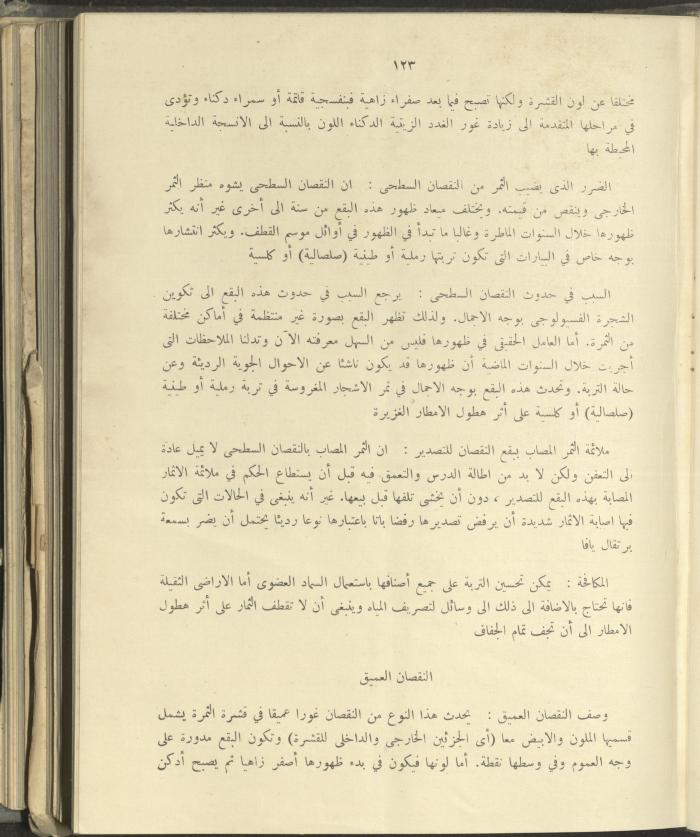 ١٢٣
مختلفا عن لون القشرة ولكنها تصبح فيما بعد صفراء زاهية فبنفسجية قاتمة أو سمراء دكناء وتؤدى
في مراحلها المتقدمة الى زيادة غور الغدد الزيتية الدكناء اللون بالنسبة الى الانسجة الداخلية
المحيطة بها
الضرر الذى يصيب الثمر من النقصان السطحى : ان النقصان السطحى يشوه منظر الثمر
الخارجى وينقص من قيمته. ويختلف ميعاد ظهور هذه البقع من سنة الى أخرى غير أنه يكثر
ظهورها خلال السنوات الماطرة وغالبا ما تبدأ في الظهور في أوائل موسم القطف. ويكثر انتشارها
بوجه خاص في البيارات التى تكون تربتها رملية أو طينية (صلصالية) أو كلسية
السبب في حدوث النقصان السطحى : يرجع السبب في حدوث هذه البقع الى تكوين
الشجرة الفسيولوجى بوجه الاجمال. ولذلك تظهر البقع بصورة غير منتظمة في أماكن مختلفة
من الثمرة. أما العامل الحقيقى في ظهورها فليس من السهل معرفته الآن وتدلنا الملاحظات التى
أجريت خلال السنوات الماضية أن ظهورها قد يكون ناشئا عن الاحوال الجوية الرديئة وعن
حالة التربة. وتحدث هذه البقع بوجه الاجمال في ثمر الاشجار المغروسة في تربة رملية أو طينية
(صلصالية) أو كلسية على أثر هطول الامطار الغزيرة
ملائمة الثمر المصاب ببقع النقصان للتصدير : ان الثمر المصاب بالنقصان السطحى لا يميل عادة
الى التعفن ولكن لا بد من اطالة الدرس والتعمق فيه قبل أن يستطاع الحكم في ملائمة الاثمار
المصابة بهذه البقع للتصدير ، دون أن يخشى تلفها قبل بيعها. غير أنه ينبغى في الحالات التى تكون
فيها اصابة الاثمار شديدة أن يرفض تصديرها رفضا باتا باعتبارها نوعا رديئا يحتمل أن يضر بسمعة
برتقال يافا
المكافحة : يمكن تحسين التربة على جميع أصنافها باستعمال السماد العضوى أما الاراضى الثقيلة
فانها تحتاج بالاضافة الى ذلك الى وسائل لتصريف المياه وينبغى أن لا تقطف الثمار على أثر هطول
الامطار الى أن تجف تمام الجفاف
النقصان العميق
وصف النقصان العميق : يحدث هذا النوع من النقصان غورا عميقا في قشرة الثمرة يشمل
قسميها الملون والابيض معا (أى الجزئين الخارجى والداخلى للقشرة) وتكون البقع مدورة على
وجه العموم وفي وسطها نقطة. أما لونها فيكون في بدء ظهورها أصفر زاهيا ثم يصبح أدكن